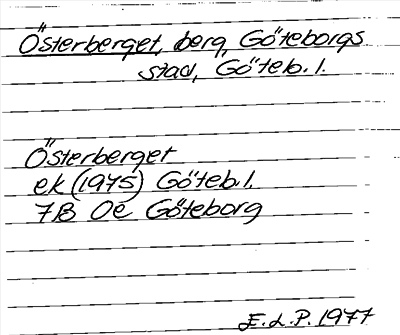 Österberget, berg, Göteborgs
stad, Göteb. l.
Österberget
ek (1975) Göteb. l.
7B 0e Göteborg
E. L. P. 1977